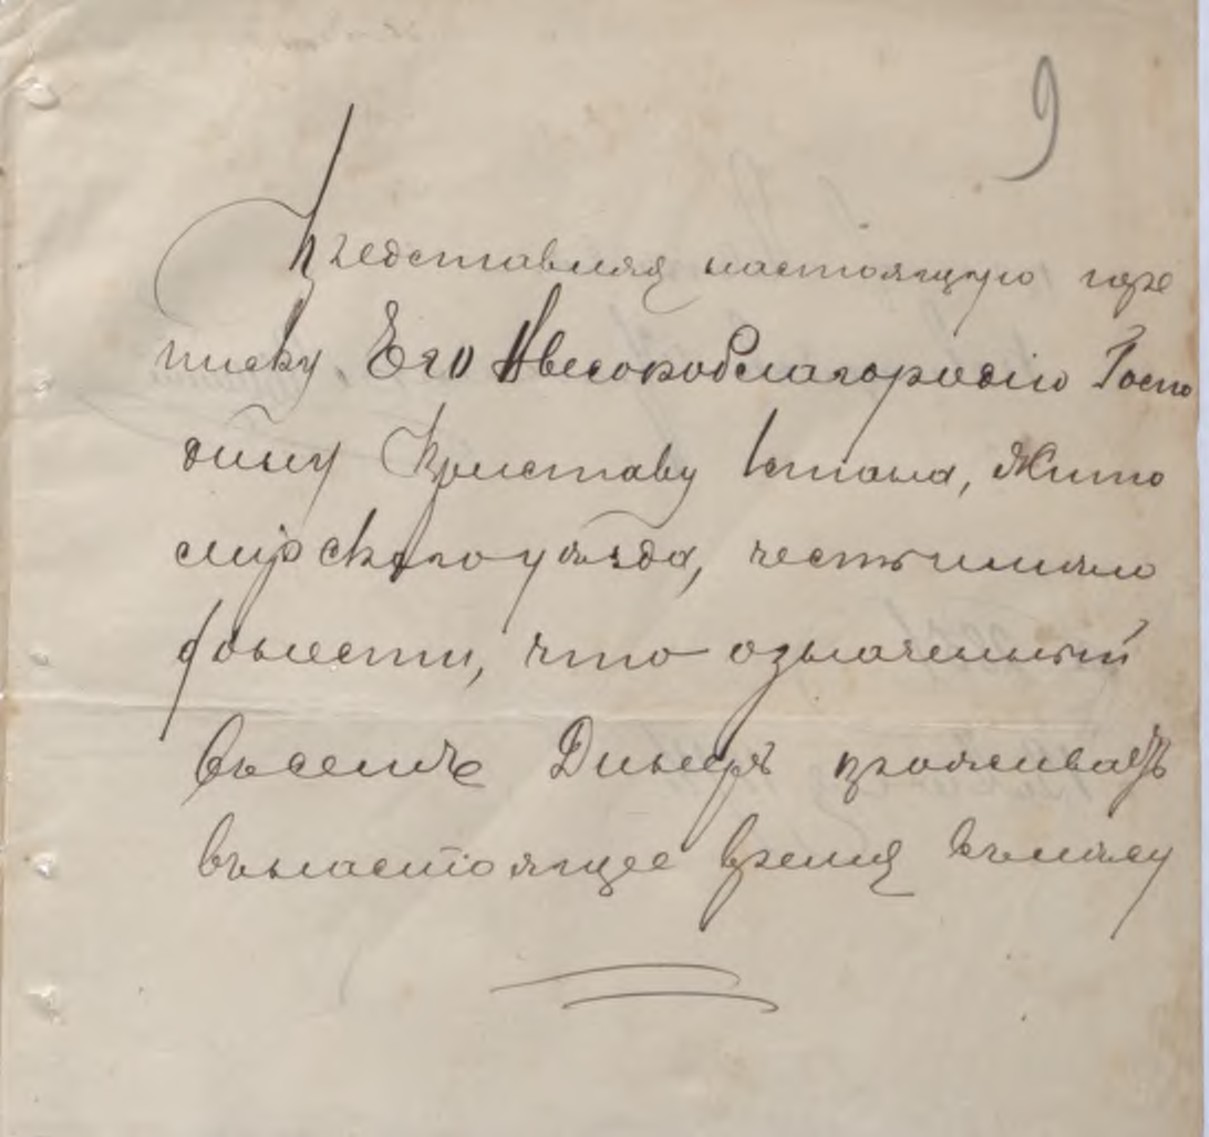 9
Представляя настоящую пере
писку Его Высокоблагородію Госпо
дину Приставу Істана, Жито
мірскаго уѣзда, честь имѣю
донести, что означенный
въ семъ Динеръ проживаетъ
въ настоящее время въ